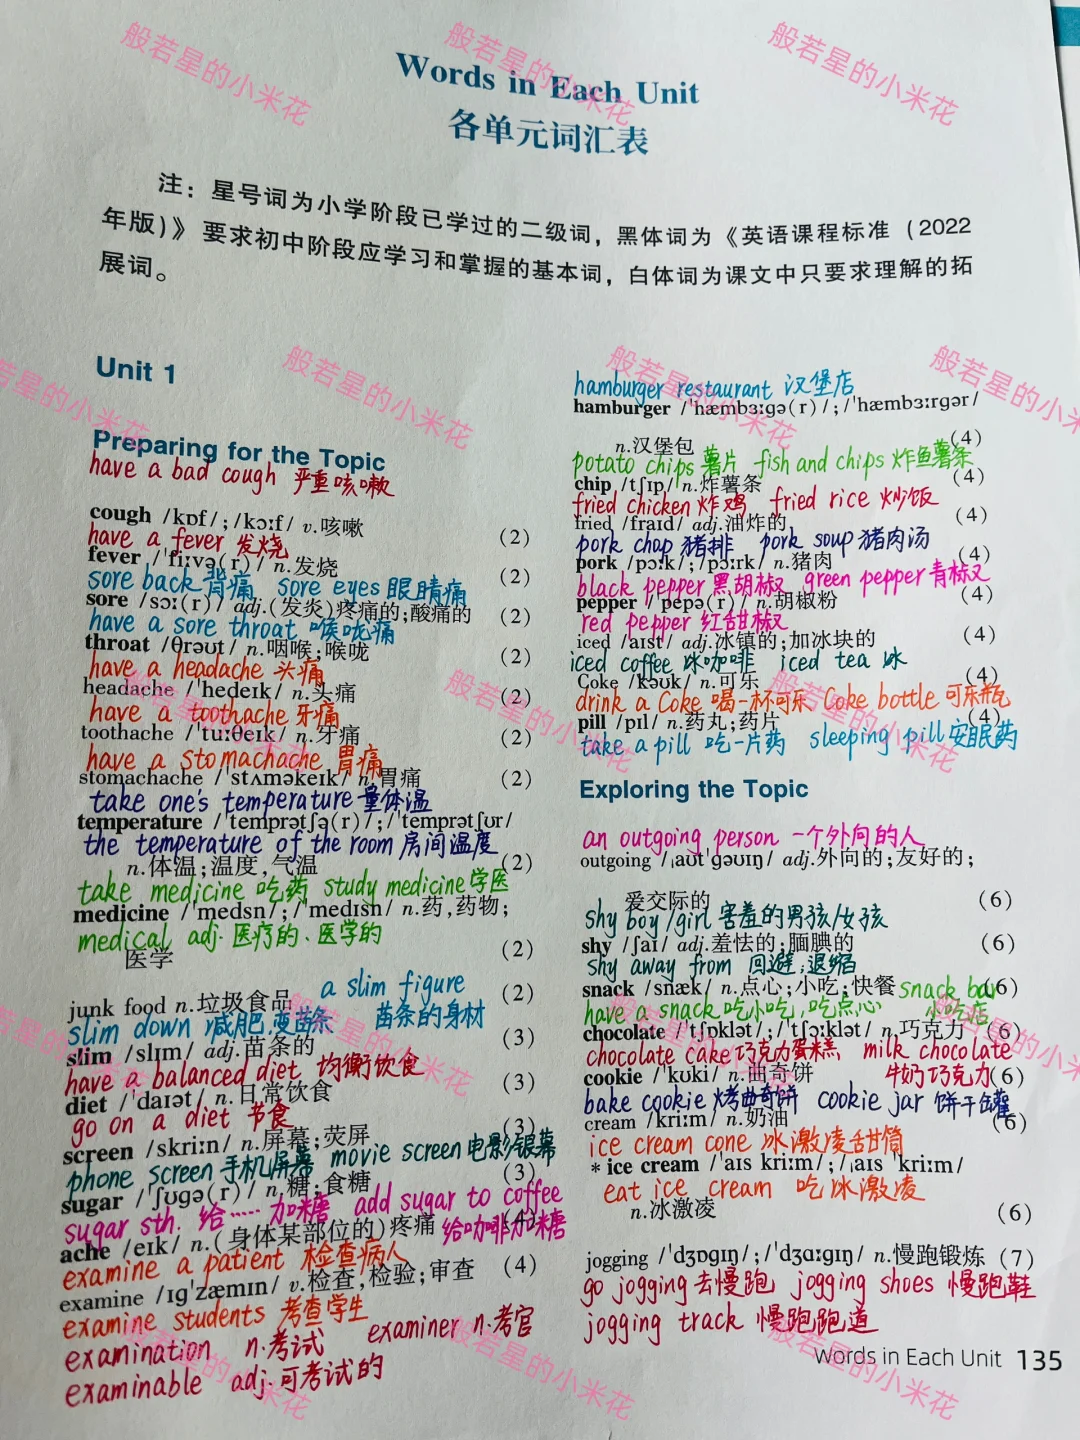 Words in Each Unit
各单元词汇表
注：星号词为小学阶段已学过的二级词，黑体词为《英语课程标准（2022
年版）》要求初中阶段应学习和掌握的基本词，白体词为课文中只要求理解的拓
展词。
Unit 1
Preparing for the Topic
have a bad cough 严重咳嗽
cough /kɒf/；/kɔːf/ v.咳嗽 (2)
have a fever 发烧
fever /ˈfiːvə(r)/ n.发烧 (2)
sore back 背痛 sore eyes 眼睛痛
sore /sɔː(r)/ adj.(发炎)疼痛的；酸痛的 (2)
have a sore throat 喉咙痛
throat /θrəʊt/ n.咽喉；喉咙 (2)
have a headache 头痛
headache /ˈhedeɪk/ n.头痛 (2)
have a toothache 牙痛
toothache /ˈtuːθeɪk/ n.牙痛 (2)
have a stomachache 胃痛
stomachache /ˈstʌməkeɪk/ n.胃痛 (2)
take one's temperature 量体温
temperature /ˈtemprətʃə(r)/；/ˈtemprətʃʊr/
the temperature of the room 房间温度
n.体温；温度，气温 (2)
take medicine 吃药 study medicine 学医
medicine /ˈmedsn/；/ˈmedɪsn/ n.药，药物；
medical adj. 医疗的、医学的
医学 (2)
a slim figure
junk food n.垃圾食品 (2)
slim down 减肥，变苗条 苗条的身材
slim /slɪm/ adj.苗条的 (3)
have a balanced diet 均衡饮食
diet /ˈdaɪət/ n.日常饮食 (3)
go on a diet 节食
screen /skriːn/ n.屏幕；荧屏 (3)
phone screen 手机屏幕 movie screen 电影银幕
sugar /ˈʃʊɡə(r)/ n.糖；食糖 (3)
sugar sth. 给……加糖 add sugar to coffee
ache /eɪk/ n.(身体某部位的)疼痛 给咖啡加糖 (4)
examine a patient 检查病人
examine /ɪɡˈzæmɪn/ v.检查，检验；审查 (4)
examine students 考查学生
examination n.考试 examiner n.考官
examinable adj.可考试的
hamburger restaurant 汉堡店
hamburger /ˈhæmbɜːɡə(r)/；/ˈhæmbɜːrɡər/
n.汉堡包 (4)
potato chips 薯片 fish and chips 炸鱼薯条
chip /tʃɪp/ n.炸薯条 (4)
fried chicken 炸鸡 fried rice 炒饭
fried /fraɪd/ adj.油炸的 (4)
pork chop 猪排 pork soup 猪肉汤
pork /pɔːk/；/pɔːrk/ n.猪肉 (4)
black pepper 黑胡椒 green pepper 青椒
pepper /ˈpepə(r)/ n.胡椒粉 (4)
red pepper 红甜椒
iced /aɪst/ adj.冰镇的；加冰块的 (4)
iced coffee 冰咖啡 iced tea 冰
Coke /kəʊk/ n.可乐 (4)
drink a Coke 喝一杯可乐 Coke bottle 可乐瓶
pill /pɪl/ n.药丸；药片 (4)
take a pill 吃一片药 sleeping pill 安眠药
Exploring the Topic
an outgoing person 一个外向的人
outgoing /ˌaʊtˈɡəʊɪŋ/ adj.外向的；友好的；
爱交际的 (6)
shy boy/girl 害羞的男孩/女孩
shy /ʃaɪ/ adj.羞怯的；腼腆的 (6)
shy away from 回避；退缩
snack /snæk/ n.点心；小吃；快餐 snack bar (6)
have a snack 吃小吃，吃点心 小吃店
chocolate /ˈtʃɒklət/；/ˈtʃɔːklət/ n.巧克力 (6)
chocolate cake 巧克力蛋糕 milk chocolate
cookie /ˈkʊki/ n.曲奇饼 牛奶巧克力 (6)
bake cookie 烤曲奇饼 cookie jar 饼干罐
cream /kriːm/ n.奶油 (6)
ice cream cone 冰激凌甜筒
*ice cream /ˈaɪs kriːm/；/ˌaɪs ˈkriːm/
eat ice cream 吃冰激凌
n.冰激凌 (6)
jogging /ˈdʒɒɡɪŋ/；/ˈdʒɑːɡɪŋ/ n.慢跑锻炼 (7)
go jogging 去慢跑 jogging shoes 慢跑鞋
jogging track 慢跑跑道
Words in Each Unit 135
般若星的小米花